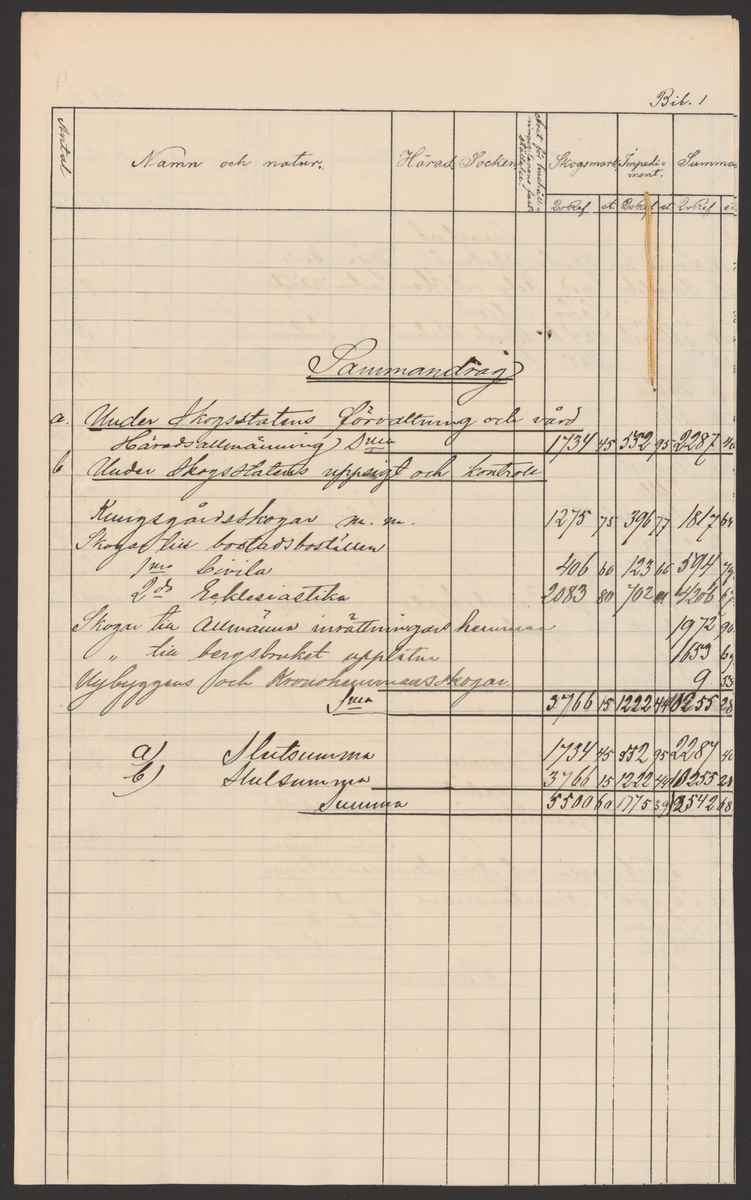 Bil. 1
Antal Namn och natur. Härad. Socken. Året för hushållningsplanens fastställelse. Skogsmark. Impediment. Summa
QvRef. ar QvRef. ar QvRef ar
Sammandrag
a. Under Skogsstatens förvaltning och vård
Häradsallmänning Sma 1734 45 552 95 2287 40
b Under Skogsstatens uppsigt och kontroll
Kungsgårdsskogar m. m. 1275 75 396 77 1817 64
Skogar till bostadsboställen
1mo Civila 406 60 123 66 594 79
2do Ecklesiastika 2083 80 702 01 4206 67
Skogar till Allmänna inrättningars hemman 1972 90
" till bergsbruket upplåtna 1653 69
Nybyggens och Kronohemmansskogar 9 53
Sma 3766 15 1222 44 10255 28
a) Slutsumma 1734 45 552 95 2287 40
b) Slutsumma 3766 15 1222 44 10255 28
Summa 5500 60 1775 39 12542 68